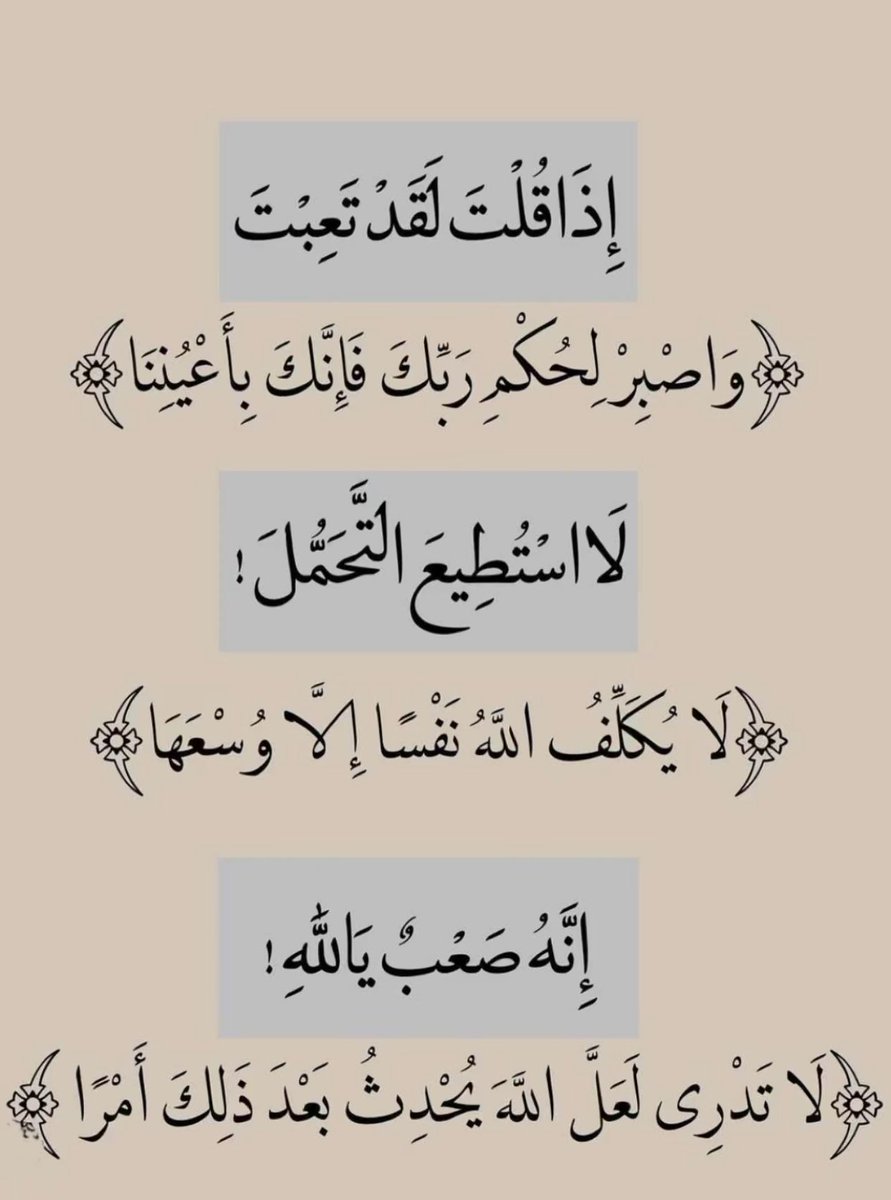 إِذَا قُلْتَ لَقَدْ تَعِبْتَ
﴿وَاصْبِرْ لِحُكْمِ رَبِّكَ فَإِنَّكَ بِأَعْيُنِنَا﴾
لَا اسْتُطِيعَ التَّحَمُّلَ!
﴿لَا يُكَلِّفُ اللَّهُ نَفْسًا إِلَّا وُسْعَهَا﴾
إِنَّهُ صَعْبٌ يَاللّٰهِ!
﴿لَا تَدْرِى لَعَلَّ اللَّهَ يُحْدِثُ بَعْدَ ذَلِكَ أَمْرًا﴾